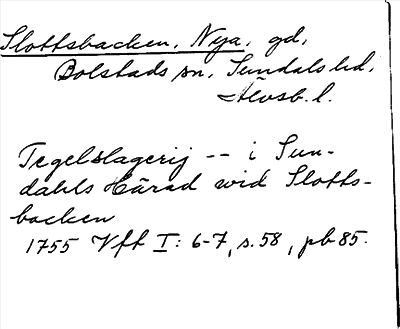 Slottsbacken, Nya, gd,
Bolstads sn, Sundals hd,
Älvsb. l.
Tegelslagerij -- i Sun-
dahls Härad wid Slotts-
backen
1755 Vft I: 6-7, s. 58, pb 85.